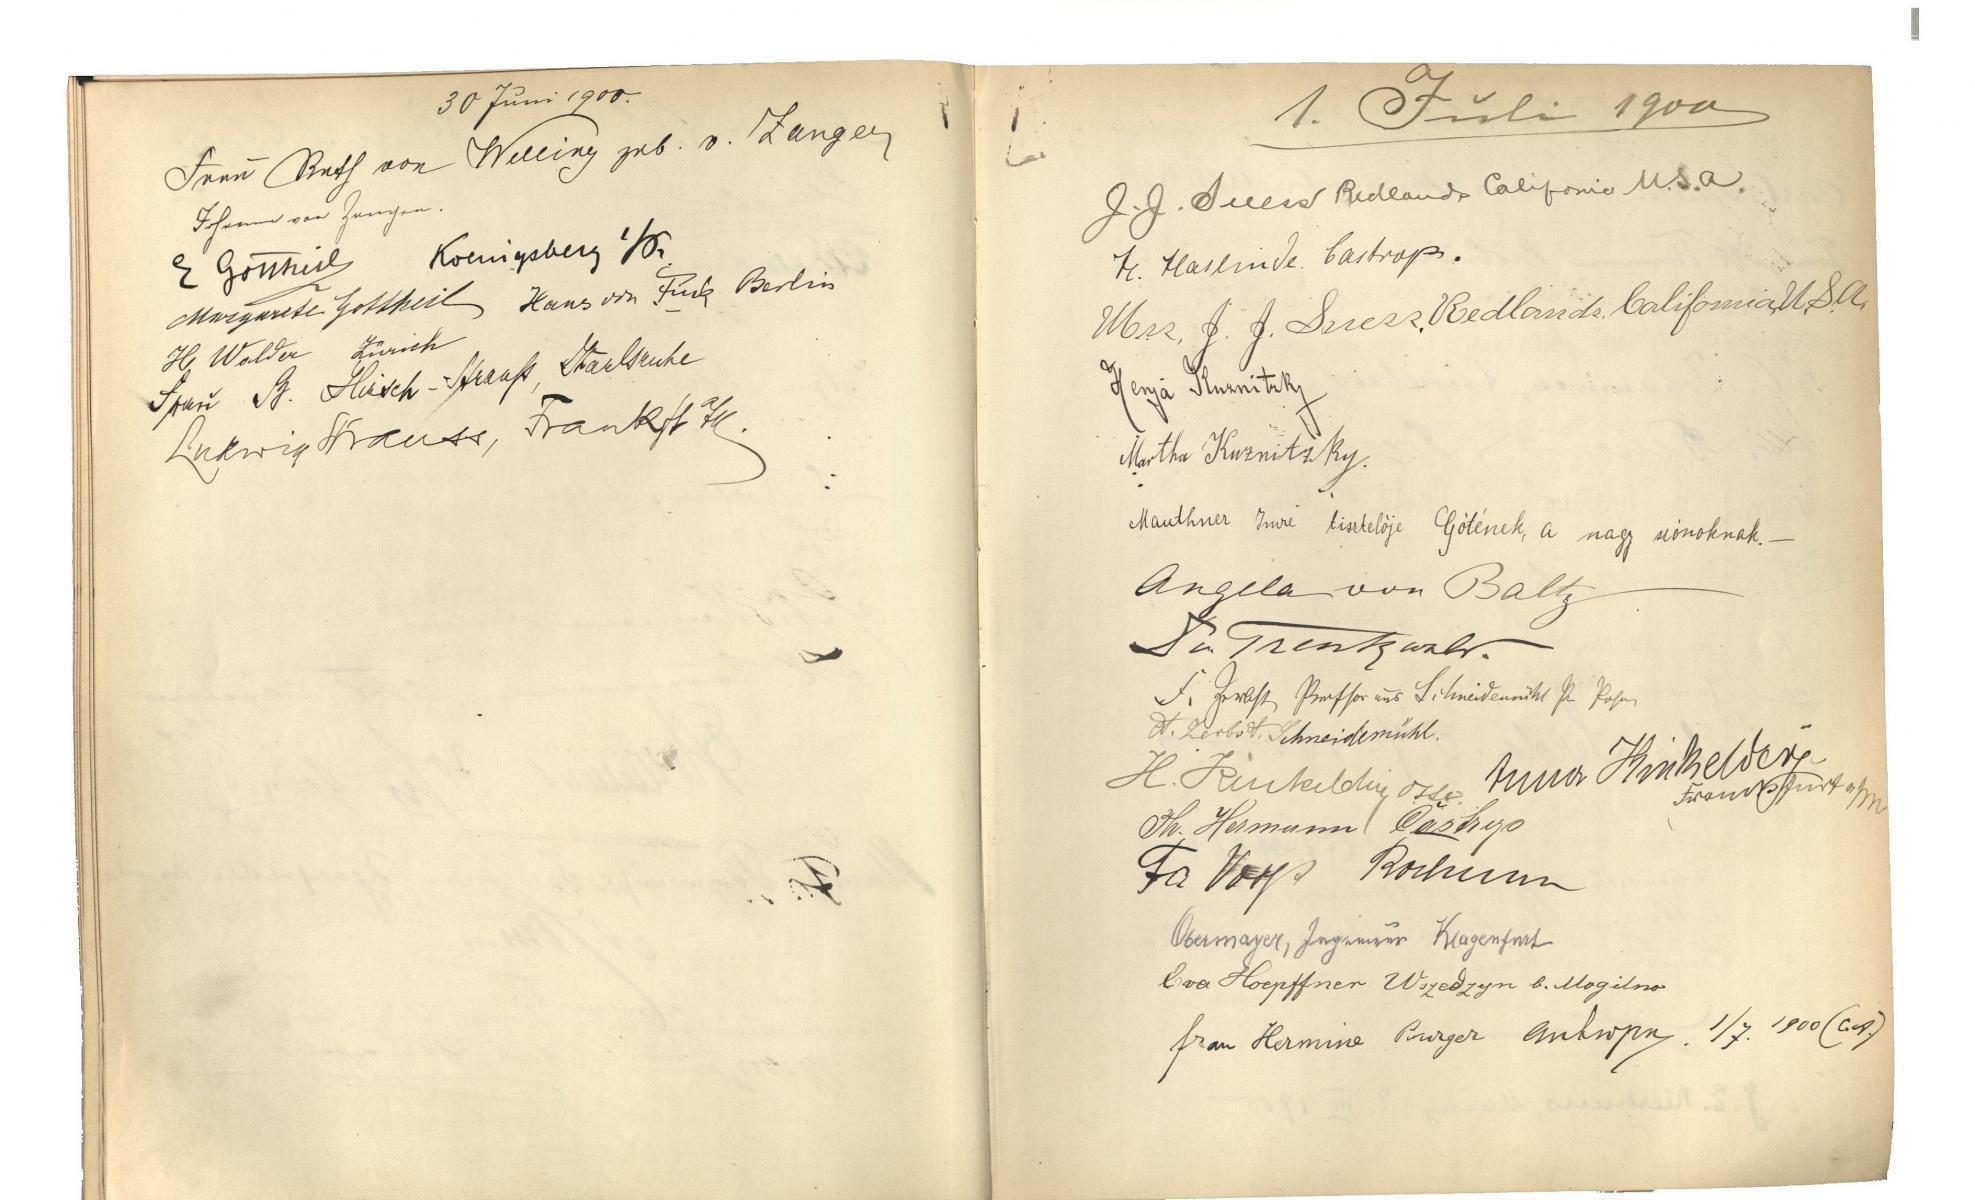 30 Juni 1900.
Frau Ruth von Welling geb. v. Zangen
von Zangen.
E Gottheil Koenigsberg i/Pr.
Margarete Gottheil Hans von Berlin
H. Walder Zürich
Frau B. Hirsch-Strauß, Karlsruhe
Ludwig Strauss, Frankft a/M.
1. Juli 1900
J. J. Suess Redlands California U.S.A.
H. Haslinde. Castrop.
Mrs. J. J. Suess, Redlands. California, U.S.A.
Kuznitzky
Martha Kuznitzky.
Mauthner Imre tisztelője Götének, a nagy siónoknak.—
Angela von Baltz
Trentzwalr.
F. Zerbst, Professor aus Schneidemühl Pr Posen
A. Zerbst. Schneidemühl.
H. Kinkeldey Anna Kinkeldey
Frankfurt a/M
Th. Hermann Castrop
Fr Voigt Bochum
Obermayer, Ingenieur Klagenfurt
Eva Hoepffner Wszedzyn b. Mogilno
frau Hermine Burger 1/7. 1900